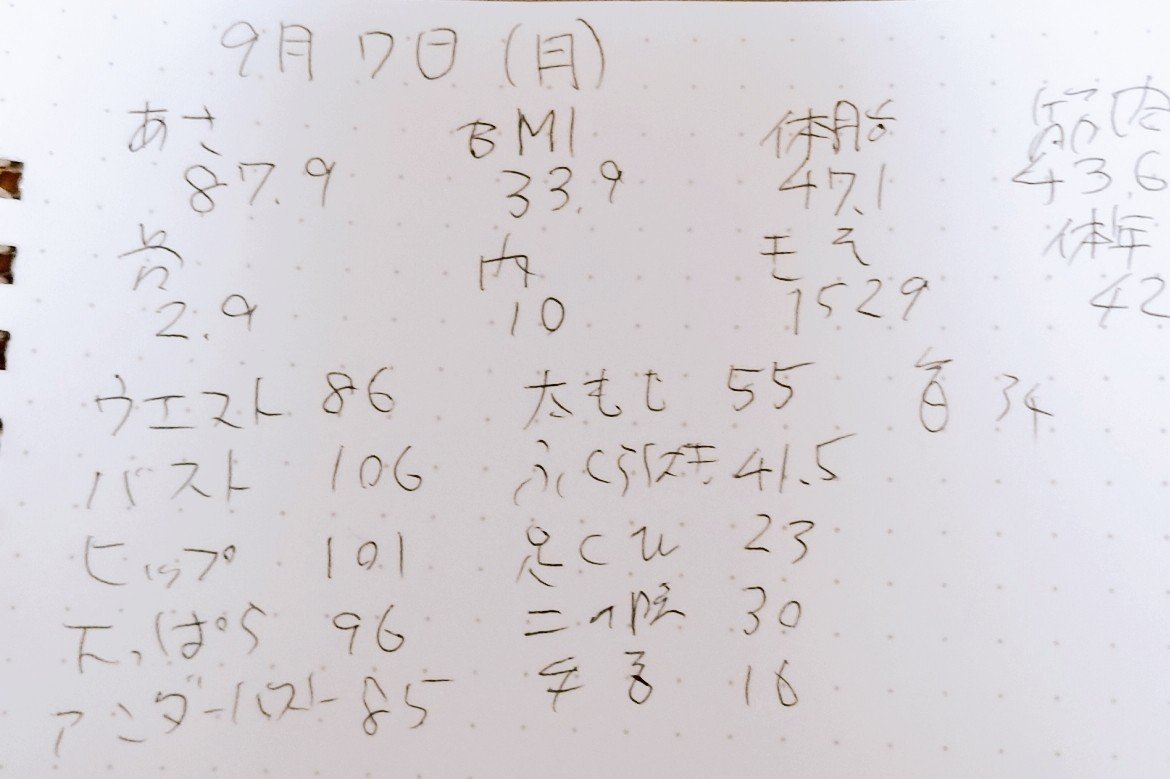 9月7日(日)
あさ BMI 体脂 筋肉
87.9 33.9 47.1 43.6
骨 内 キモ 体年
2.9 10 1529 42
ウエスト 86 太もも 55 首 34
バスト 106 ふくらはぎ 41.5
ヒップ 101 足くび 23
下っぱら 96 二の腕 30
アンダーバスト 85 手首 16